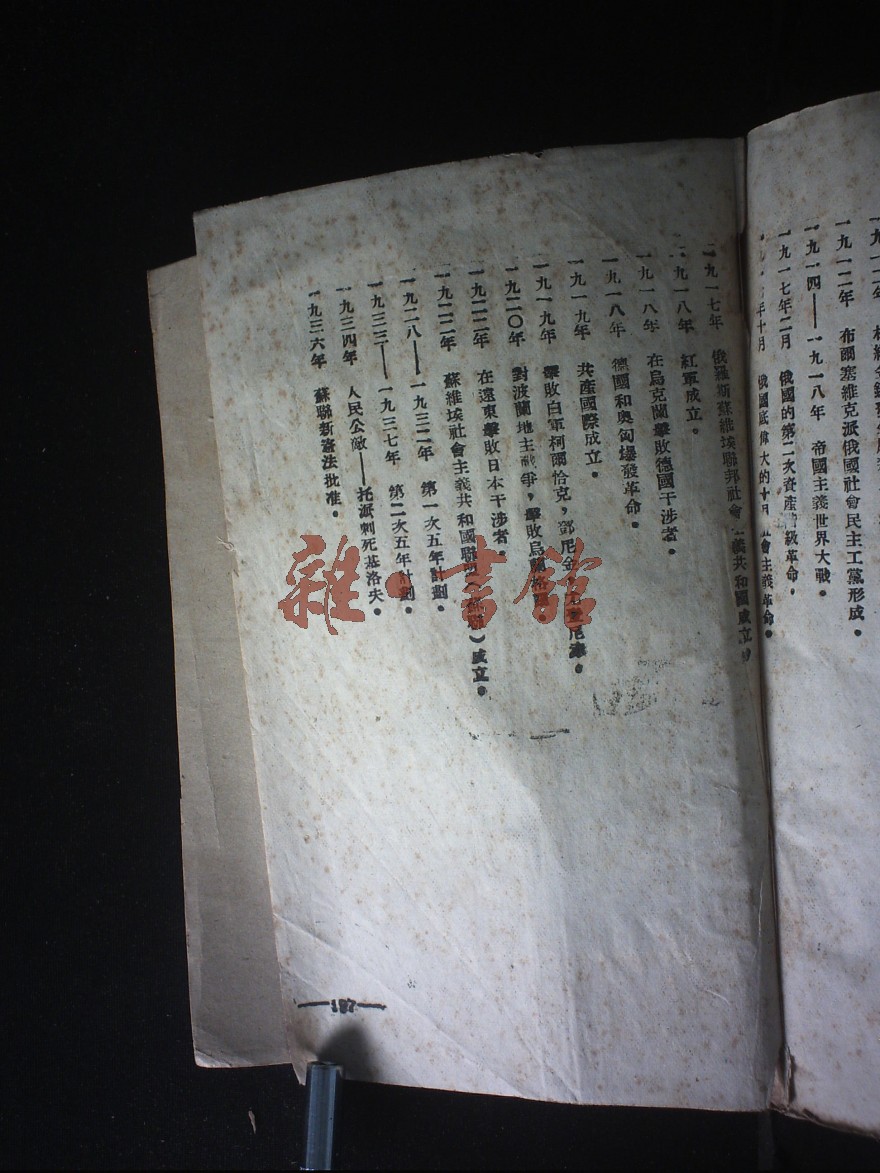 一九一二年 布爾塞維克派俄國社會民主工黨形成。
一九一四——一九一八年 帝國主義世界大戰。
一九一七年二月 俄國的第二次資產階級革命。
年十月 俄國底偉大的十月社會主義革命。
一九一七年 俄羅斯蘇維埃聯邦社會主義共和國成立。
一九一八年 紅軍成立。
一九一八年 在烏克蘭擊敗德國干涉者。
一九一八年 德國和奧匈爆發革命。
一九一九年 共產國際成立。
一九一九年 擊敗白軍柯爾恰克，鄧尼金
一九二〇年 對波蘭地主戰爭，擊敗烏蘭格
一九二二年 在遠東擊敗日本干涉者。
一九二二年 蘇維埃社會主義共和國聯盟（蘇聯）成立。
一九二八——一九三二年 第一次五年計劃。
一九三三——一九三七年 第二次五年計劃。
一九三四年 人民公敵——托派刺死基洛夫。
一九三六年 蘇聯新憲法批准。
—187—
雜·書館